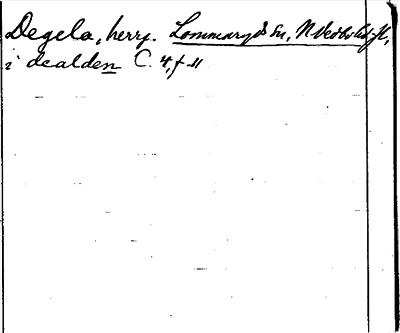 Degela, herrg. Lommaryds sn, N Vedbo hd, Jk,
i dealden C. 4, f. 11